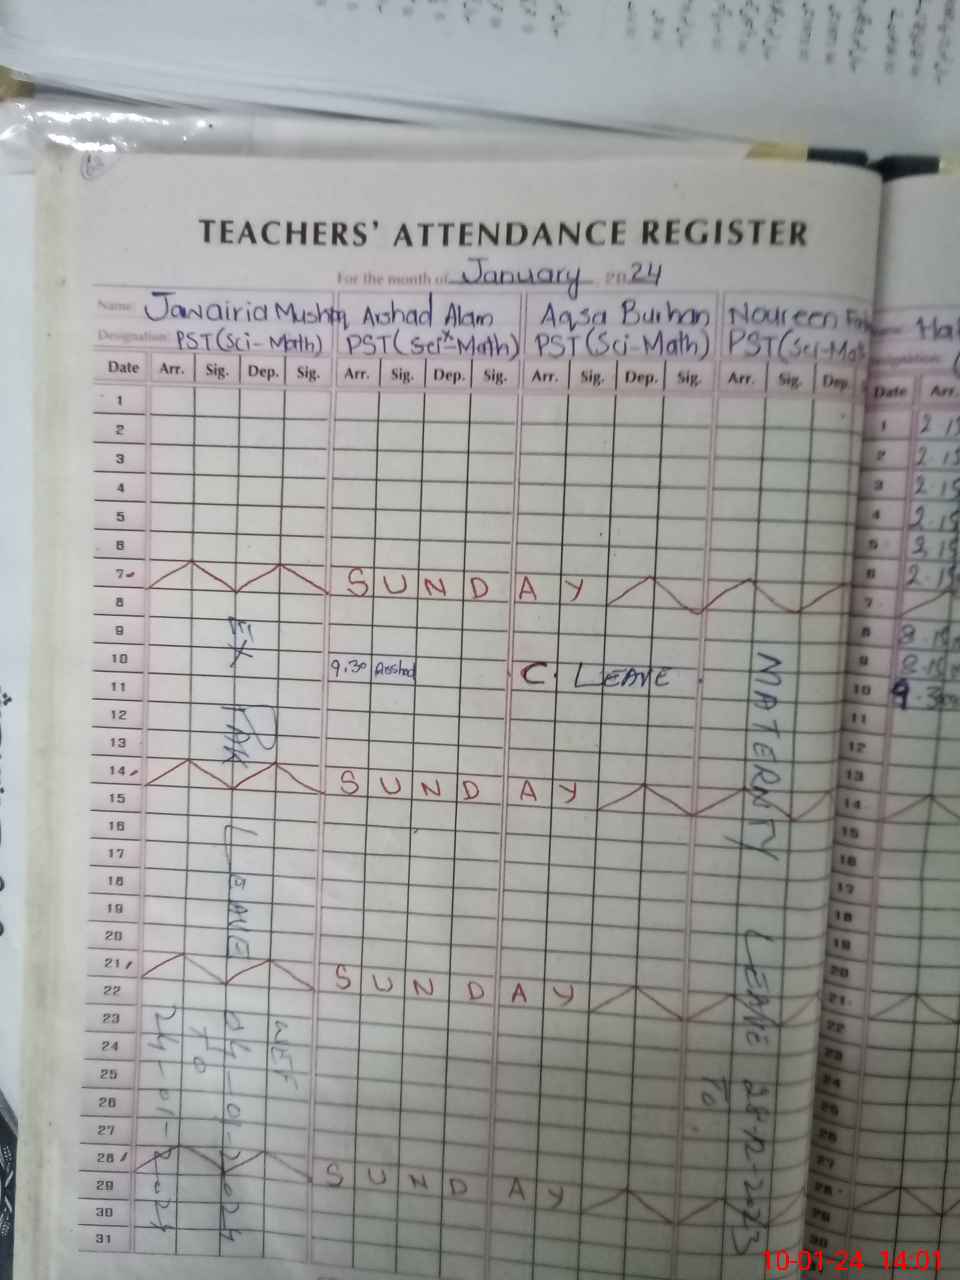 TEACHERS' ATTENDANCE REGISTER
For the month of January 2024
Name Jawairia Mushtq Arshad Alam Aqsa Burhan Noureen
Designation PST (Sci-Math) PST (Sci-Math) PST (Sci-Math) PST (Sci-Mat
Date Arr. Sig. Dep. Sig. Arr. Sig. Dep. Sig. Arr. Sig. Dep. Sig. Arr. Sig. Dep. Date Arr.
1 1 2.15
2 2 2.15
3 3 2.15
4 4 2.15
5 5
6 6 2.15
7 SUNDAY 7
8 8
9 9
10 9.30 Arshad C. LEAVE 10
11 11
12 12
13 13
14 SUNDAY 14
15 15
16 16
17 17
18 18
19 19
20 20
21 SUNDAY 21
22 22
23 23
24 24
25 25
26 26
27 27
28 SUNDAY 28
29 29
30 30
31
EX PAK LEAVE
WEF
04-01-2024
TO
24-01-2024
MATERNTY LEAVE 28-12-2023
TO
10-01-24 14:01